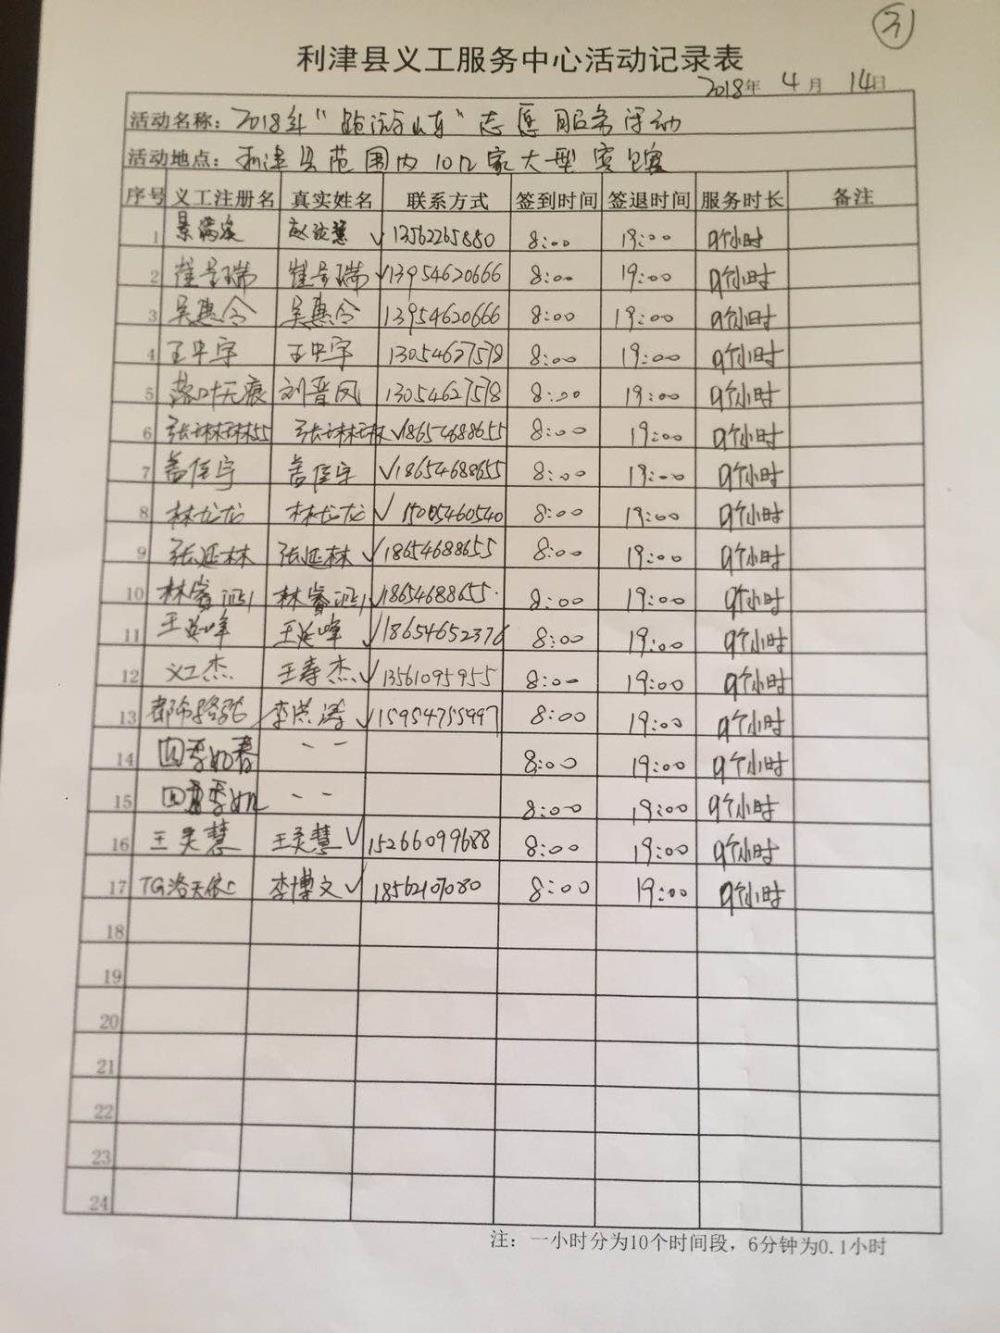 ③
利津县义工服务中心活动记录表
2018年 4 月 14日
活动名称：2018年"踏游山东"志愿服务活动
活动地点：利津县范围内10几家大型
序号 义工注册名 真实姓名 联系方式 签到时间 签退时间 服务时长 备注
1 √13562265880 8:00 19:00 9个小时
2 崔景瑞 崔景瑞 √13954620666 8:00 19:00 9个小时
3 吴惠令 吴惠令 13954620666 8:00 19:00 9个小时
4 王中宇 王中宇 13054627578 8:00 19:00 9个小时
5 落叶无痕 刘晋风 13054627578 8:00 19:00 9个小时
6 张琳琳55 张琳琳 √18654688655 8:00 19:00 9个小时
7 盖佳宇 盖佳宇 √18654688655 8:00 19:00 9个小时
8 林龙龙 林龙龙 √ 15005460540 8:00 19:00 9个小时
9 张延林 张延林 √18654688655 8:00 19:00 9个小时
10 林睿 林睿 √18654688655 8:00 19:00 9个小时
11 王延峰 王延峰 √18654652376 8:00 19:00 9个小时
12 义工杰 王寿杰 √13561095955 8:00 19:00 9个小时
13 李洪涛 √15954755997 8:00 19:00 9个小时
14 四季如春 -- 8:00 19:00 9个小时
15 -- 8:00 19:00 9个小时
16 王灵慧 王灵慧 √15266099688 8:00 19:00 9个小时
17 TG洛天依 李博文 √18562107080 8:00 19:00 9个小时
18
19
20
21
22
23
24
注：一小时分为10个时间段，6分钟为0.1小时